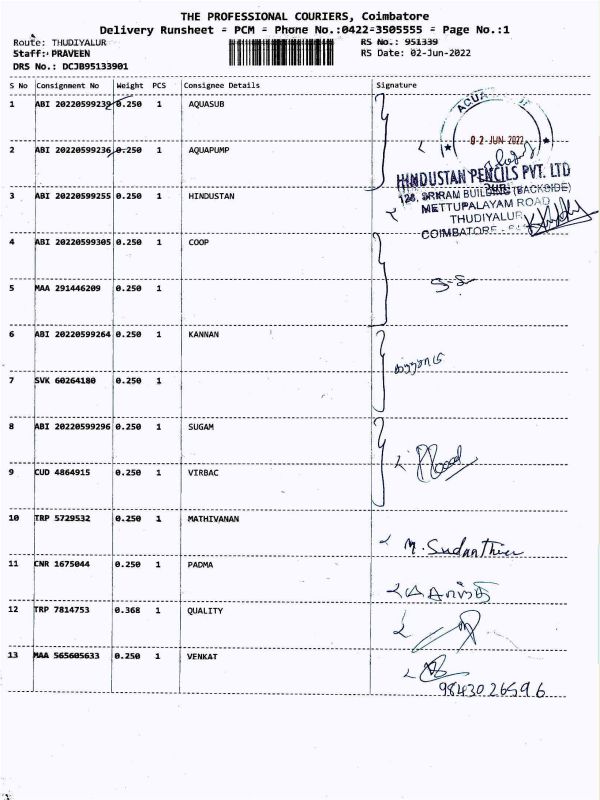 THE PROFESSIONAL COURIERS, Coimbatore
Delivery Runsheet - PCM - Phone No.:0422-3505555 - Page No.:1
Route: THUDIYALUR
RS No.: 951339
Staff: PRAVEEN
RS Date: 02-Jun-2022
DRS No.: DCJB95133901
S No Consignment No Weight PCS Consignee Details Signature
1 ABI 20220599239 0.250 1 AQUASUB
02-JUN 2022
2 ABI 20220599236 0.250 1 AQUAPUMP
HINDUSTAN PENCILS PVT. LTD
126, SRIRAM BUILDING (BACKSIDE)
3 ABI 20220599255 0.250 1 HINDUSTAN
METTUPALAYAM ROAD
THUDIYALUR
COIMBATORE -
4 ABI 20220599305 0.250 1 COOP
5 MAA 291446209 0.250 1
6 ABI 20220599264 0.250 1 KANNAN
7 SVK 60264180 0.250 1
8 ABI 20220599296 0.250 1 SUGAM
9 CUD 4864915 0.250 1 VIRBAC
10 TRP 5729532 0.250 1 MATHIVANAN
11 CNR 1675044 0.250 1 PADMA
12 TRP 7814753 0.368 1 QUALITY
13 MAA 565605633 0.250 1 VENKAT
9843026596